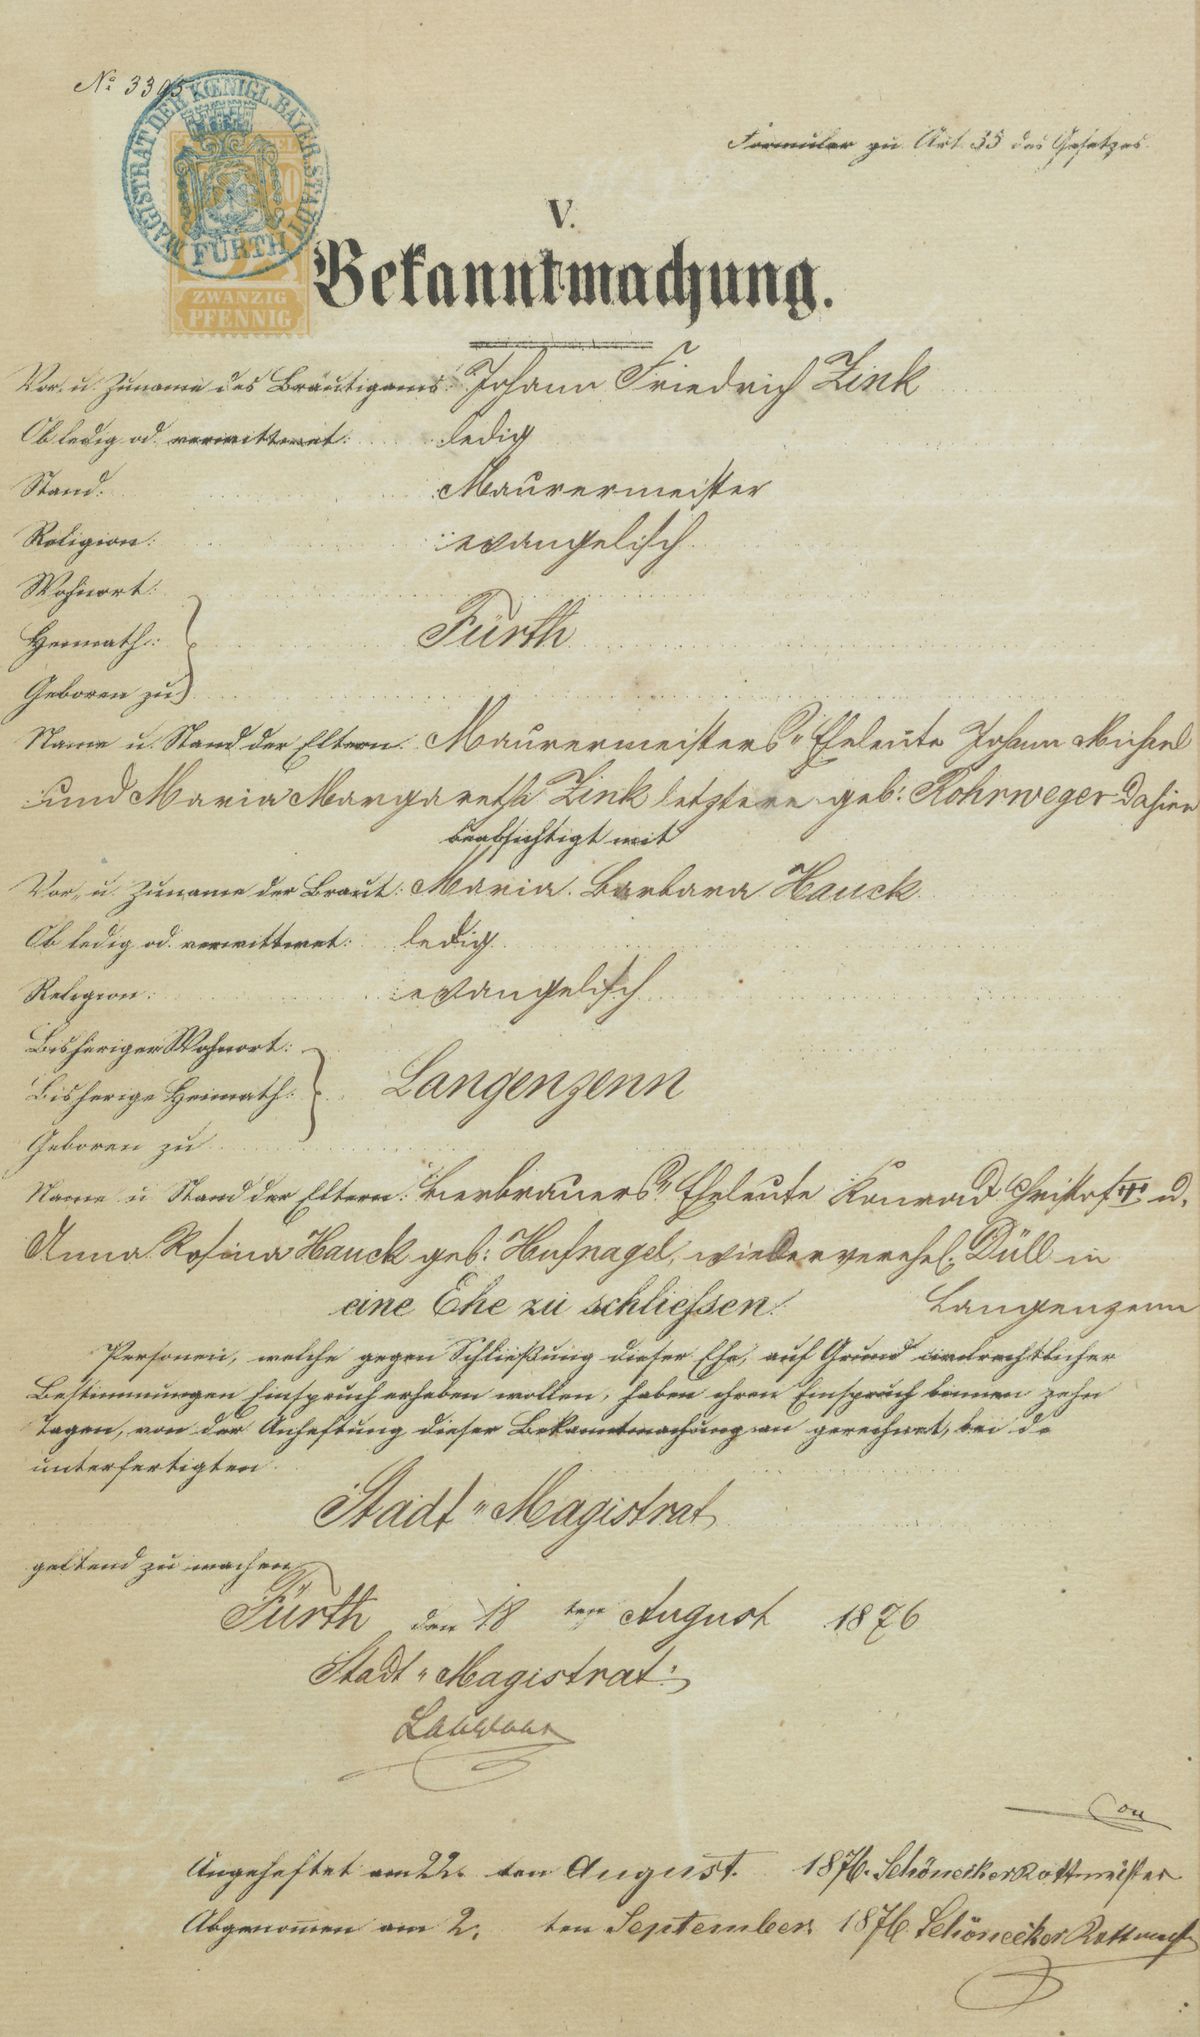 No 3395
MAGISTRAT DER KŒNIGL. BAYER. STADT FÜRTH
ZWANZIG
PFENNIG
Formular zu Art. 35 des Gesetzes.
V.
Bekanntmachung.
Vor- u. Zuname des Bräutigams: Johann Friedrich Zink
Ob ledig od. verwittwet: ledig
Stand: Maurermeister
Religion: evangelisch
Wohnort:
Heimath: Fürth
Geboren zu
Name u. Stand der Eltern: Maurermeisters-Eheleute Johann Michael
und Maria Margaretha Zink letztere geb: Rohrweger dahier
beabsichtigt mit
Vor- u. Zuname der Braut: Maria Barbara Hauck
Ob ledig od. verwittwet: ledig
Religion: evangelisch
Bisheriger Wohnort:
Bisherige Heimath: Langenzenn
Geboren zu
Name u. Stand der Eltern: Bierbrauers-Eheleute Konrad Christof u.
Anna Rosina Hauck geb: Hufnagel, wiederverehel: Düll in
eine Ehe zu schliessen. Langenzenn
Personen, welche gegen Schließung dieser Ehe, auf Grund civilrechtlicher
Bestimmungen Einspruch erheben wollen, haben ihren Einspruch binnen zehn
Tagen, von der Anheftung dieser Bekanntmachung an gerechnet, bei d
unterfertigten
Stadt-Magistrat
geltend zu machen.
Fürth den 18 ten August 1876
Stadt-Magistrat:
Angeheftet am 22. ten August. 1876. Schönecker Rottmeister
Abgenommen am 2. ten September 1876 Schönecker Rottmeist